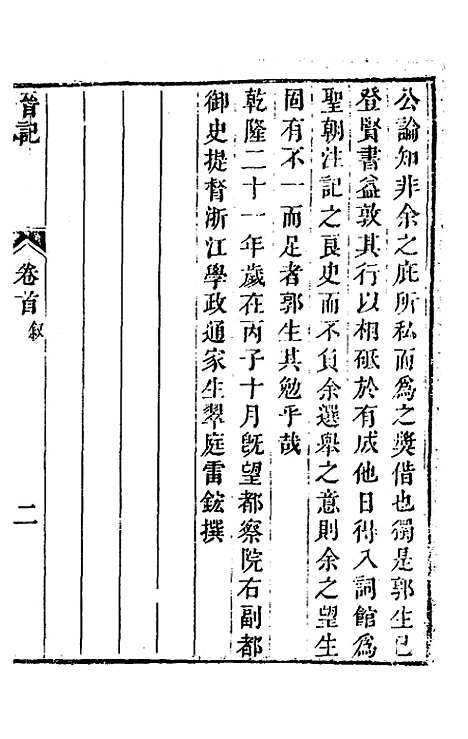 公論知非余之庇所私而爲之奬借也獨是郭生已
登賢書益敦其行以相砥於有成他日得入詞館爲
聖朝注記之良史而不負余選舉之意則余之望生
固有不一而足者郭生其勉乎哉
乾隆二十一年歲在丙子十月旣望都察院右副都
御史提督浙江學政通家生翠庭雷鋐撰
晉記
卷首
叙
二